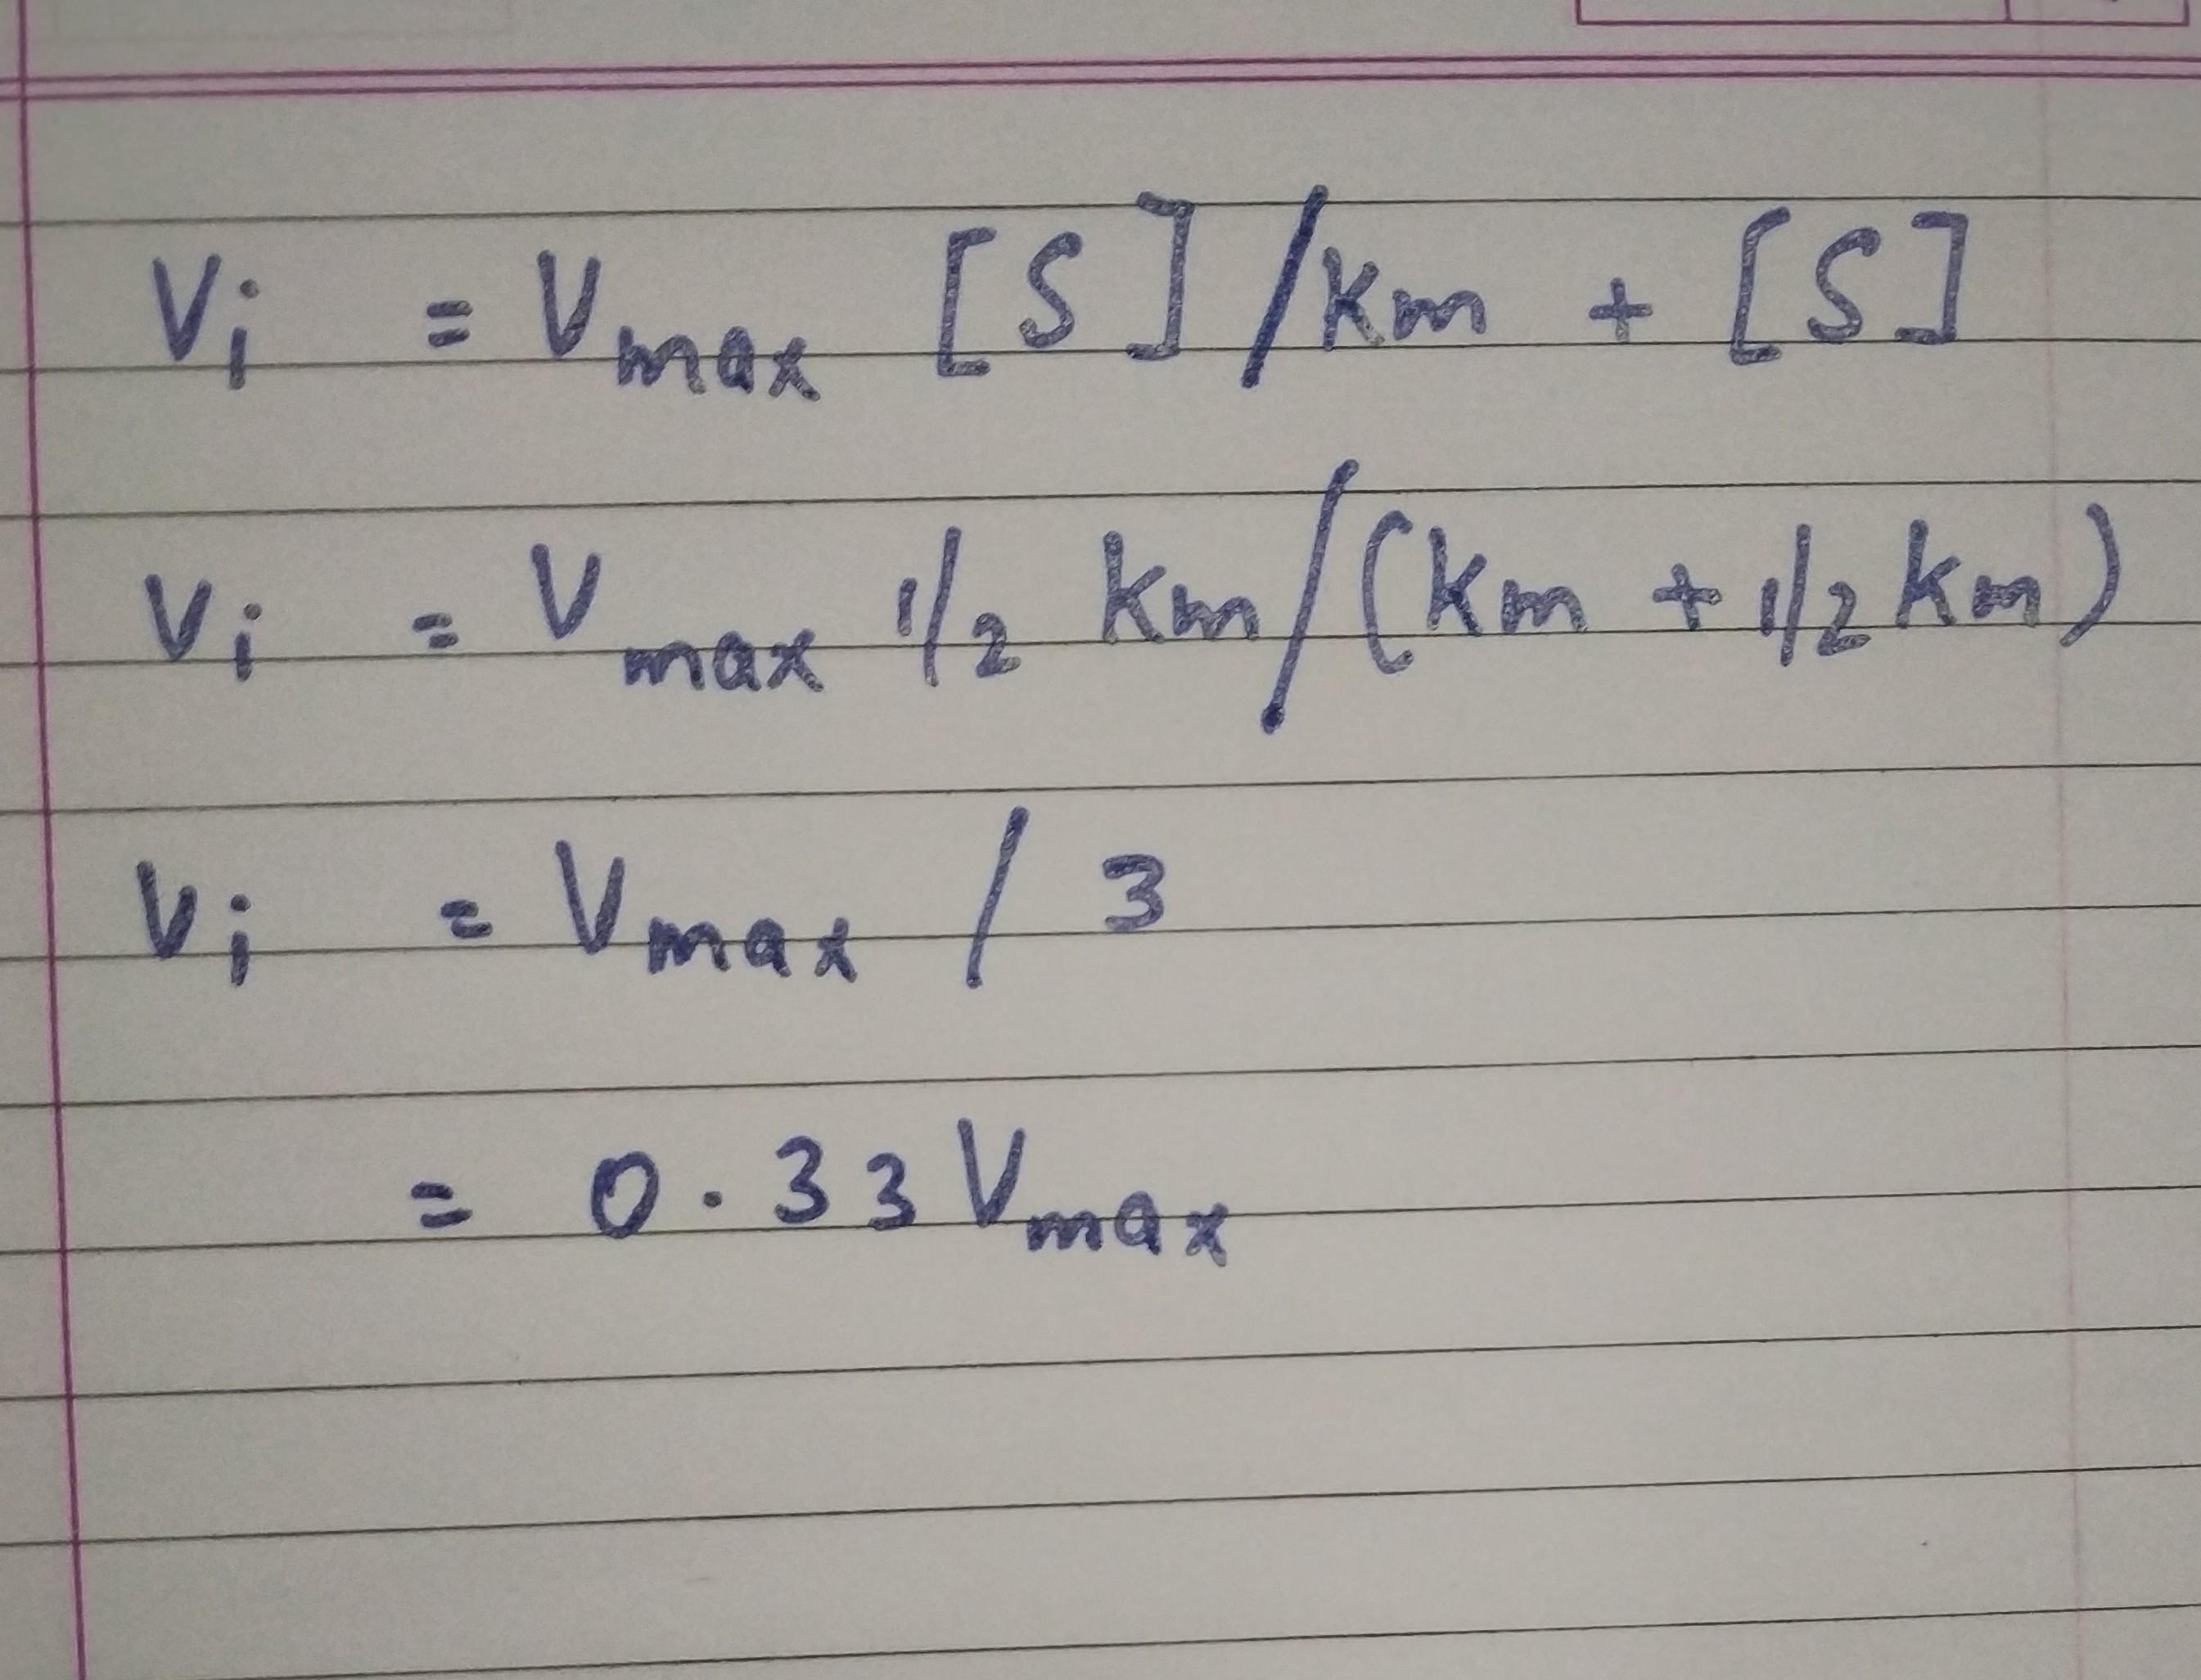 Vi = Vmax [S]/km + [S]
Vi = Vmax 1/2 km/(km + 1/2 km)
Vi = Vmax / 3
= 0.33 Vmax